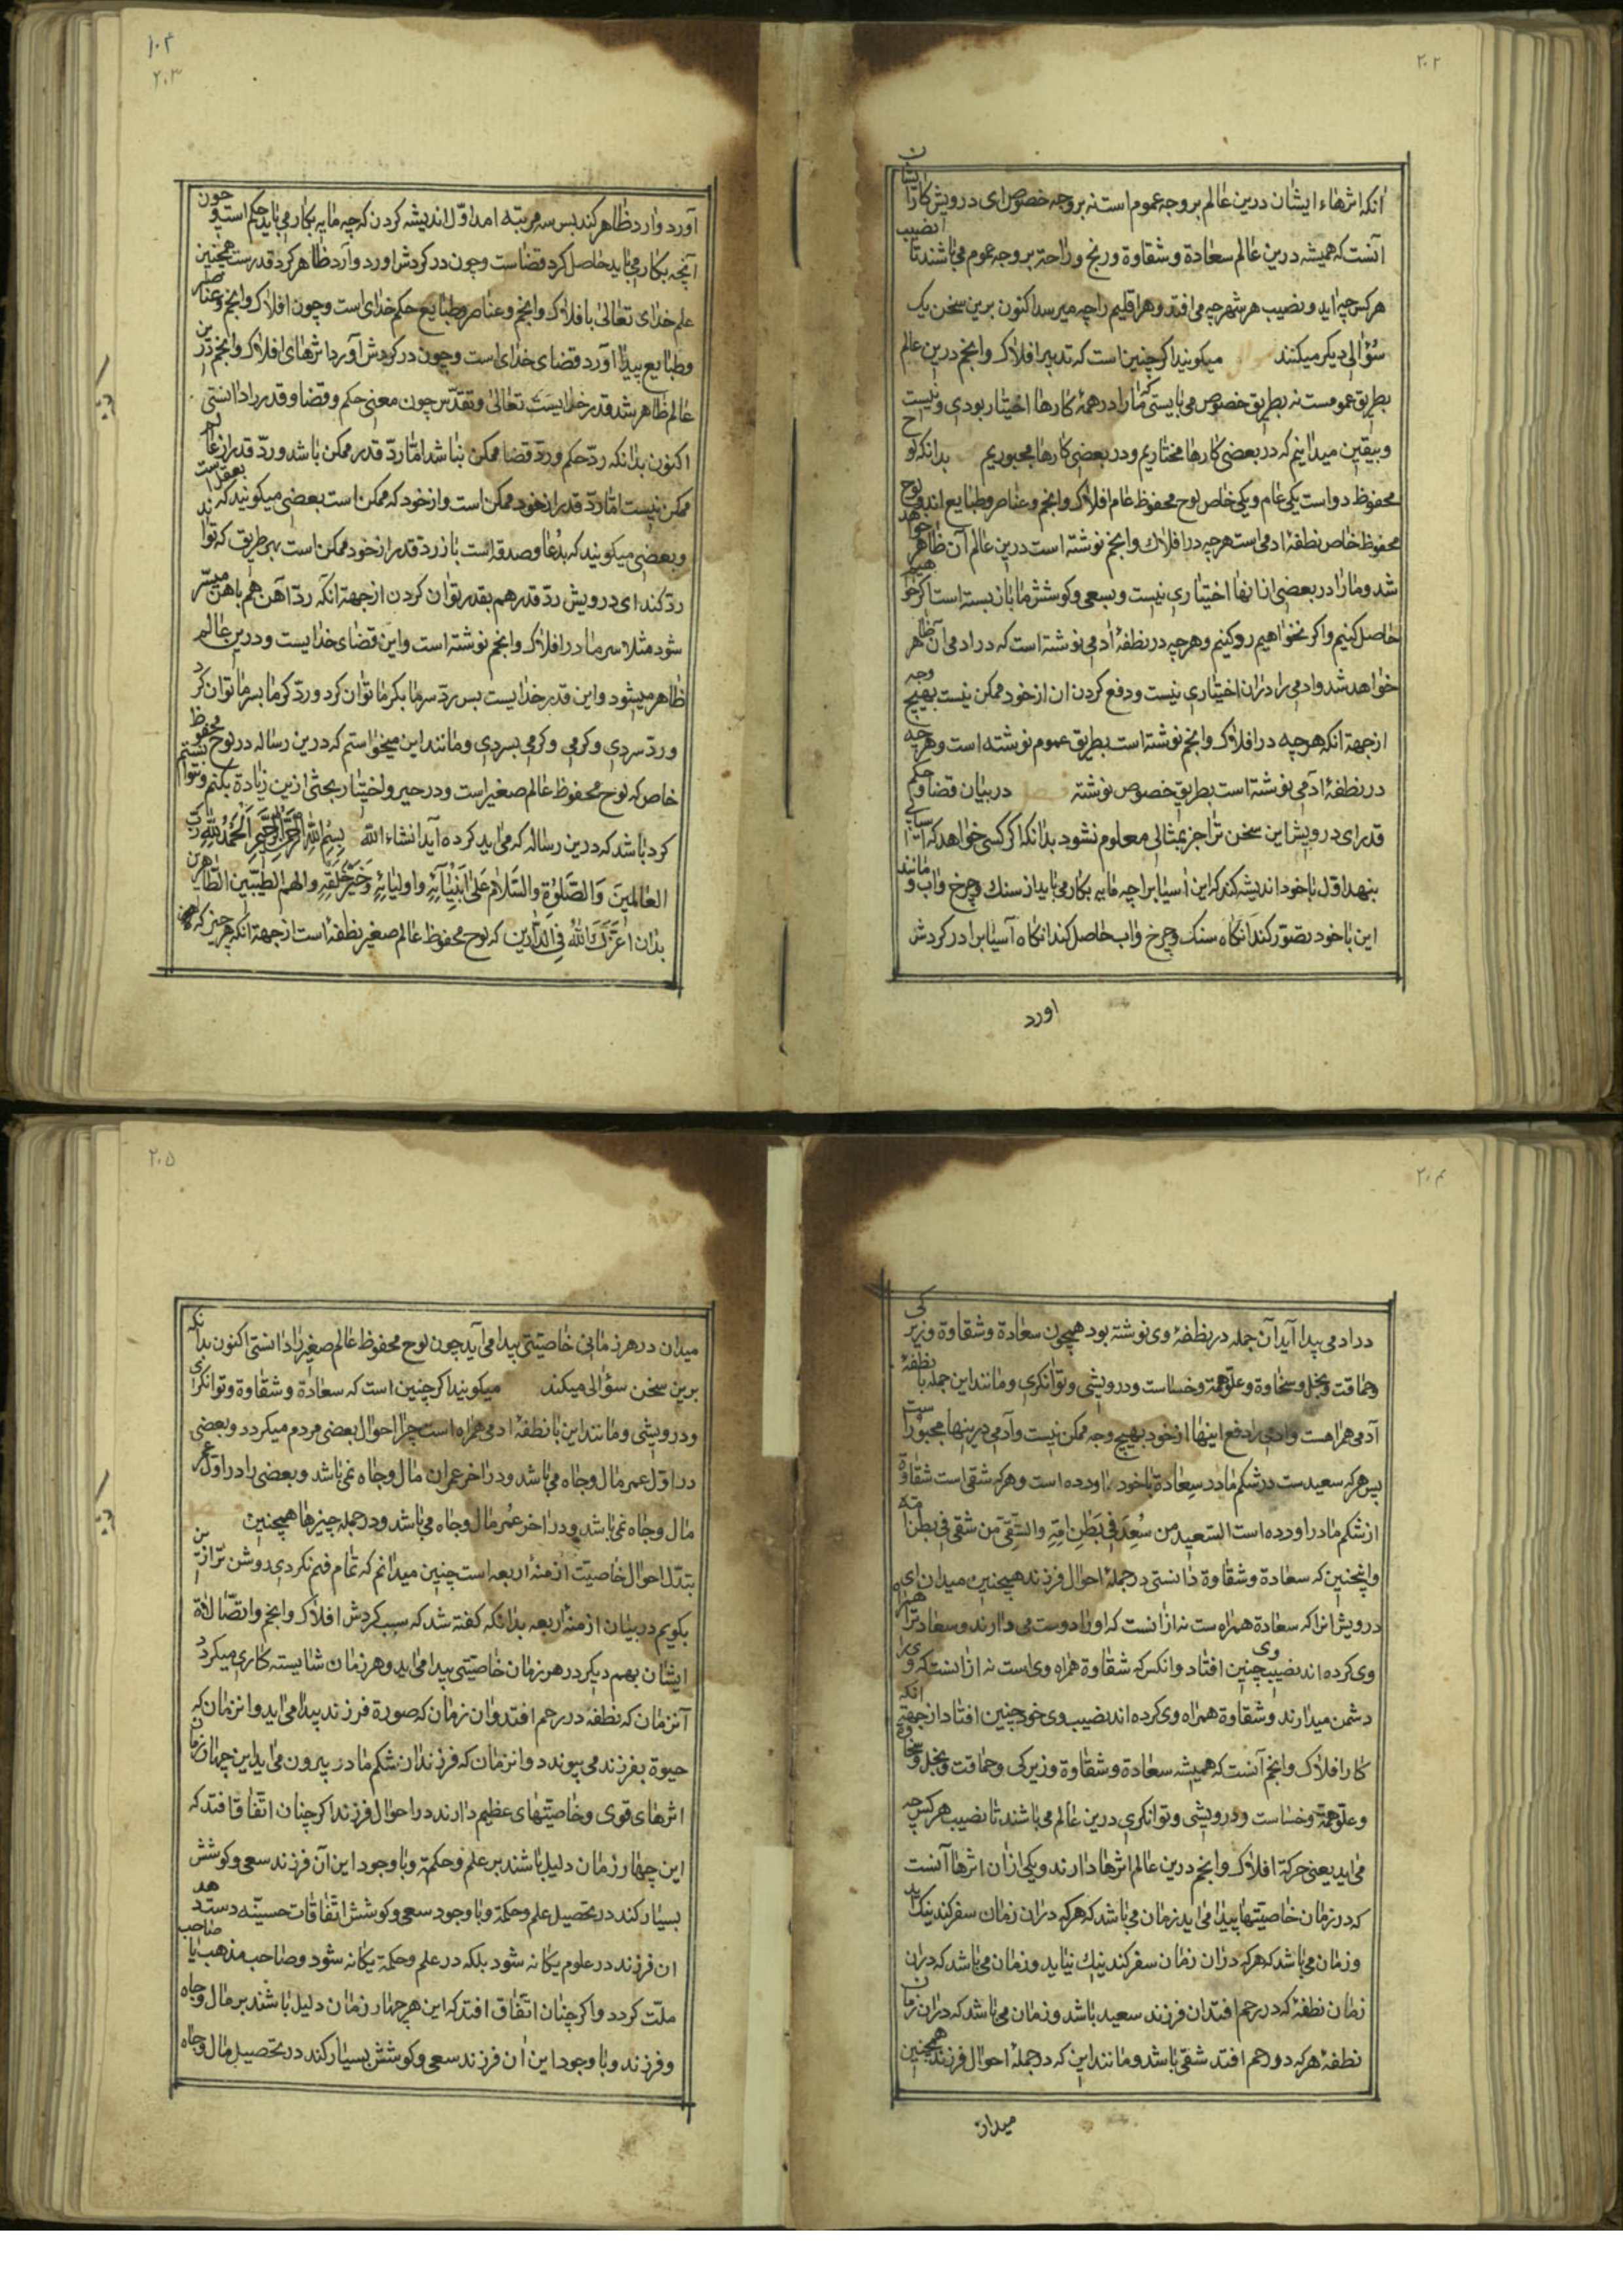 ۲۰۲
انکه اثرهاء ایشان درین عالم بر وجه عموم است نه بر وجه خصوص ای درویش کار ایشان
آنست که همیشه درین عالم سعادة و شقاوة و رنج و راحة بر وجه عموم می باشند تا نصیب
هر کس چه اید و نصیب هر شهر چه می افتد و هر اقلیم را چه میرسد اکنون برین سخن یک
سؤالی دیکر میکنند میکویند اکر چنین است که تدبیر افلاک و انجم درین عالم
بطریق عمومست نه بطریق خصوص می بایستی که مارا در همهٔ کارها اختیار بودی و نیست
و بیقین میدانیم که در بعضی کارها مختاریم و در بعضی کارها مجبوریم بدانکه لوح
محفوظ دو است یکی عام و یکی خاص لوح محفوظ عام افلاک و انجم و عناصر و طبایع اند و لوح
محفوظ خاص نطفهٔ ادمی است هر چه در افلاک و انجم نوشته است درین عالم آن ظاهر خواهد
شد و مارا در بعضی از انها اختیاری نیست و بسعی و کوشش ما باز بسته است اکر خواهیم
حاصل کنیم و اکر نخواهیم رو کنیم و هر چه در نطفهٔ ادمی نوشته است که در ادمی آن ظاهر
خواهد شد و ادمی را دران اختیاری نیست و دفع کردن ان از خود ممکن نیست بهیچ وجه
از جهة انکه هر چه در افلاک و انجم نوشته است بطریق عموم نوشته است و هر چه
در نطفهٔ ادمی نوشته است بطریق خصوص نوشته فصل در بیان قضا و حکم
قدر ای درویش این سخن ترا جز بمثالی معلوم نشود بدانکه اکر کسی خواهد که آسیایی
بنهد اوّل با خود اندیشه کند که این آسیا را چه مایه بکار می باید از سنک و چرخ و اب و مانند
این با خود تصوّر کند انکاه سنک و چرخ و اب حاصل کند انکاه آسیا را در کردش
اورد
۱۰۲
۲۰۳
آورد و ارد ظاهر کند بس سه مرتبه امد اوّل اندیشه کردن که چه مایه بکار می باید حکم است و چون
آنچه بکار می باید حاصل کرد قضا است و چون در کردش اورد و آرد ظاهر کرد قدرست همچنین
علم خدای تعالی با افلاک و انجم و عناصر و طبایع حکم خدای است و چون افلاک و انجم و عناصر
و طبایع پیدا آورد قضای خدای است و چون در کردش آورد اثرهای افلاک و انجم درین
عالم ظاهر شد قدر خدایست تعالی و تقدّس چون معنی حکم و قضا و قدر را دانستی
اکنون بدانکه ردّ حکم و ردّ قضا ممکن نباشد امّا ردّ قدر ممکن باشد و ردّ قدر از عالم
ممکن نیست امّا ردّ قدر از خود ممکن است و از خود که ممکن است بعضی میکویند که بعقل است
و بعضی میکویند که بدعا و صدقه است باز ردّ قدر از خود ممکن است بهر طریق که توانند
ردّ کند ای درویش ردّ قدر هم بقدر توان کردن از جهة انکه ردّ آهن هم باهن میسّر
شود مثلا سرما در افلاک و انجم نوشته است و این قضای خدایست و درین عالم
ظاهر میشود و این قدر خدایست بس ردّ سرما بکرما توان کرد و ردّ کرما بسرما توان کرد
و ردّ سردی و کرمی و کرمی بسردی و مانند این میخواستم که درین رساله در لوح محفوظ
خاص که لوح محفوظ عالم صغیر است و در جبر و اختیار بحثی ازین زیادة بکنم و نتوانستم
کرد باشد که درین رساله که می اید کرده آید انشاء الله بسم الله الرحمن الرحیم الحمد لله رب
العالمین والصلوة والسلام علی انبیائه و اولیائه و خیر خلقه و الهم الطیبین الطاهرین
بدان اعزک الله فی الدارین که لوح محفوظ عالم صغیر نطفه است از جهة انکه هر چیز که
۲۰۴
در ادمی پیدا آید آن جمله در نطفهٔ وی نوشته بود همچون سعادة و شقاوة و زیرکی
و حماقت و بخل و سخاوة و علوّ همة و خساست و درویشی و توانکری و مانند این جمله با نطفهٔ
آدمی همراهست و ادمی را دفع اینها از خود بهیچ وجه ممکن نیست و آدمی درینها مجبورست
پس هر که سعیدست در شکم مادر سعادة با خود اورده است و هر که شقی است شقاوة
از شکم مادر اورده است السّعید من سُعِدَ فی بَطنِ اُمّه و الشّقی من شقی فی بطن امّه
و انچنین که سعادة و شقاوة دانستی در جملهٔ احوال فرزند همچنین میدان ای
درویش انرا که سعادة همراه ست نه ازانست که اورا دوست می دارند و سعادترا همراه
وی کرده اند نصیب وی چنین افتاد و انکس که شقاوة همراه وی است نه از انست که ویرا
دشمن میدارند و شقاوة همراه وی کرده اند نصیب وی خود چنین افتاد از جهة انکه
کار افلاک و انجم آنست که همیشه سعادة و شقاوة و زیرکی و حماقت و بخل و سخاوة
و علوّ همة و خساست و درویشی و توانکری درین عالم می باشند تا نصیب هر کس چه
می اید یعنی حرکة افلاک و انجم درین عالم اثرها دارند و یکی ازان اثرها آنست
که در زمان خاصیتها پیدا می اید زمان می باشد که هر که دران زمان سفر کند نیک اید
و زمان می باشد که هر که دران زمان سفر کند نیک نیاید و زمان می باشد که دران
زمان نطفهٔ که در رحم افتد ان فرزند سعید باشد و زمان می باشد که دران زمان
نطفهٔ هر که در رحم افتد شقی باشد و مانند این که در جملهٔ احوال فرزند همچنین
میدان
۲۰۵
میدان در هر زمانی خاصیّتی پیدا می آید چون لوح محفوظ عالم صغیر را دانستی اکنون بدانکه
برین سخن سؤالی میکند میکویند اکر چنین است که سعادة و شقاوة و توانکری
و درویشی و مانند این با نطفهٔ ادمی همراه است چرا احوال بعضی مردم میکردد و بعضی
در اوّل عمر مال و جاه می باشد و در اخر عمر ان مال و جاه نمی باشد و بعضی را در اوّل عمر
مال و جاه نمی باشد و در اخر عمر مال و جاه می باشد و در جمله چیزها همچنین
بتدّل احوال خاصیّت ازمنهٔ اربعه است چنین میدانم که تمام فهم نکردی روشن تر ازین
بکویم در بیان ازمنهٔ اربعه بدانکه کفته شد که سبب کردش افلاک و انجم و اتّصالاة
ایشان بهم دیکر در هر زمان خاصیّتی پیدا می اید و هر زمان شایسته کاری میکردد
آنزمان که نطفه در رحم افتد و ان زمان که صورة فرزند پیدا می اید و انزمان که
حیوة بفرزند می پیوندد و انزمان که فرزند از شکم مادر بیرون می اید این چهار زمان
اثرهای قوی و خاصیّتهای عظیم دارند در احوال فرزند اکر چنان اتّفاق افتد که
این چهار زمان دلیل باشند بر علم و حکمة و با وجود این آن فرزند سعی و کوشش
بسیار کند در تحصیل علم و حکمة و با وجود سعی و کوشش اتّفاقات حسنه دست دهد
ان فرزند در علوم یکانه شود بلکه در علم و حکمة یکانه شود و صاحب مذهب یا صاحب
ملّت کردد و اکر چنان اتّفاق افتد که این هر چهار زمان دلیل باشند بر مال و جاه
و فرزند و با وجود این ان فرزند سعی و کوشش بسیار کند در تحصیل مال و جاه